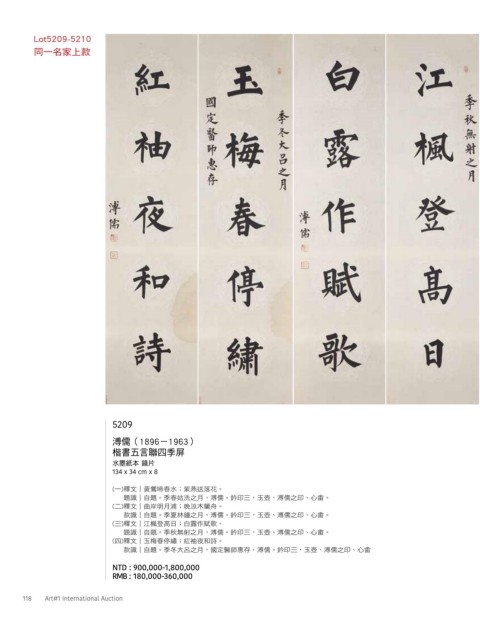 Lot5209-5210
同一名家上款
季秋無射之月
江楓登高日
白露作賦歌
溥儒
季冬大呂之月
玉梅春停繡
國定醫師惠存
紅袖夜和詩
溥儒
5209
溥儒（1896－1963）
楷書五言聯四季屏
水墨紙本 鏡片
134 x 34 cm x 8
(一)釋文｜黃鶯啼春水；紫燕話落花。
題識｜自題。季春姑洗之月，溥儒。鈐印三，玉壺、溥儒之印、心畬。
(二)釋文｜曲岸明月滿；晚涼木蘭舟。
款識｜自題。季夏林鐘之月，溥儒。鈐印三，玉壺、溥儒之印、心畬。
(三)釋文｜江楓登高日；白露作賦歌。
題識｜自題。季秋無射之月，溥儒。鈐印三，玉壺、溥儒之印、心畬。
(四)釋文｜玉梅春停繡；紅袖夜和詩。
款識｜自題。季冬大呂之月，國定醫師惠存，溥儒。鈐印三，玉壺、溥儒之印、心畬
NTD : 900,000-1,800,000
RMB : 180,000-360,000
118 Art#1 International Auction